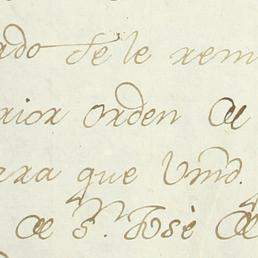 ado se le rem
rior orden de
ara que Vmd.
de S.n José de